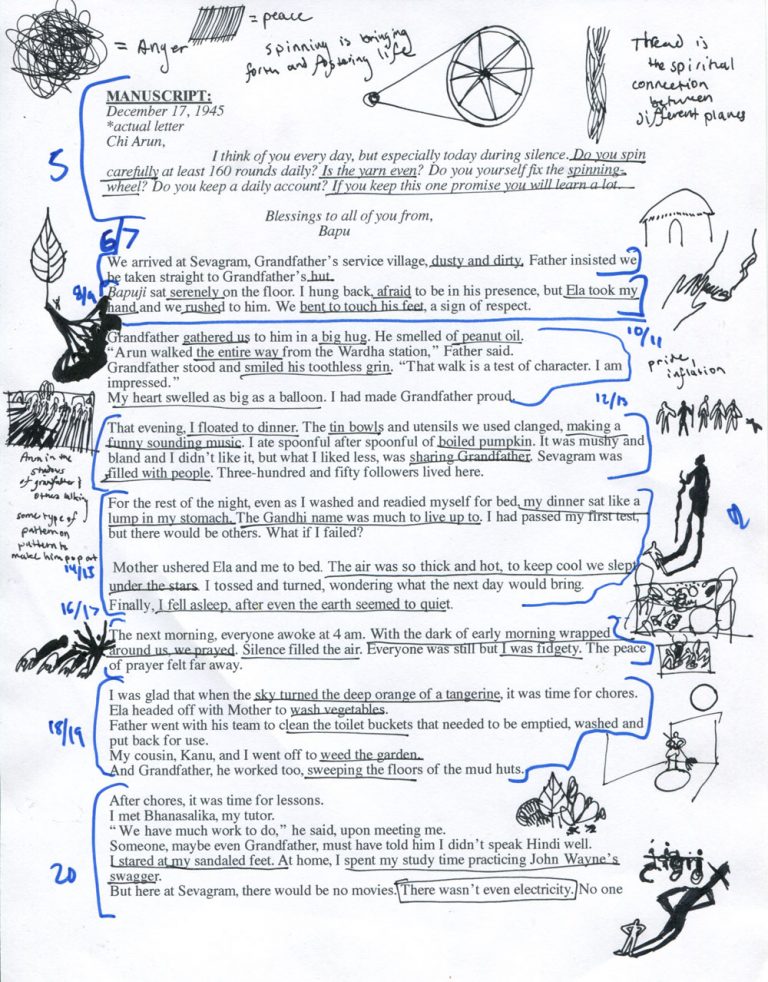 = Anger
= peace
spinning is bringing
forth and fostering life
Thread is
the spiritual
connection
between
different planes
5
MANUSCRIPT:
December 17, 1945
*actual letter
Chi Arun,
I think of you every day, but especially today during silence. Do you spin
carefully at least 160 rounds daily? Is the yarn even? Do you yourself fix the spinning-
wheel? Do you keep a daily account? If you keep this one promise you will learn a lot.
Blessings to all of you from,
Bapu
6/7
We arrived at Sevagram, Grandfather's service village, dusty and dirty. Father insisted we
be taken straight to Grandfather's hut.
8/9
Bapuji sat serenely on the floor. I hung back, afraid to be in his presence, but Ela took my
hand and we rushed to him. We bent to touch his feet, a sign of respect.
10/11
Grandfather gathered us to him in a big hug. He smelled of peanut oil.
"Arun walked the entire way from the Wardha station," Father said.
Grandfather stood and smiled his toothless grin. "That walk is a test of character. I am
impressed."
My heart swelled as big as a balloon. I had made Grandfather proud.
pride,
inflation
12/13
That evening, I floated to dinner. The tin bowls and utensils we used clanged, making a
funny sounding music. I ate spoonful after spoonful of boiled pumpkin. It was mushy and
bland and I didn't like it, but what I liked less, was sharing Grandfather. Sevagram was
filled with people. Three-hundred and fifty followers lived here.
Arun in the
shadows
of grandfather &
others talking
some type of
pattern on
pattern to
make him pop out
For the rest of the night, even as I washed and readied myself for bed, my dinner sat like a
lump in my stomach. The Gandhi name was much to live up to. I had passed my first test,
but there would be others. What if I failed?
14/15
Mother ushered Ela and me to bed. The air was so thick and hot, to keep cool we slept
under the stars. I tossed and turned, wondering what the next day would bring.
Finally, I fell asleep, after even the earth seemed to quiet.
16/17
The next morning, everyone awoke at 4 am. With the dark of early morning wrapped
around us, we prayed. Silence filled the air. Everyone was still but I was fidgety. The peace
of prayer felt far away.
18/19
I was glad that when the sky turned the deep orange of a tangerine, it was time for chores.
Ela headed off with Mother to wash vegetables.
Father went with his team to clean the toilet buckets that needed to be emptied, washed and
put back for use.
My cousin, Kanu, and I went off to weed the garden.
And Grandfather, he worked too, sweeping the floors of the mud huts.
20
After chores, it was time for lessons.
I met Bhanasalika, my tutor.
"We have much work to do," he said, upon meeting me.
Someone, maybe even Grandfather, must have told him I didn't speak Hindi well.
I stared at my sandaled feet. At home, I spent my study time practicing John Wayne's
swagger.
But here at Sevagram, there would be no movies. There wasn't even electricity. No one